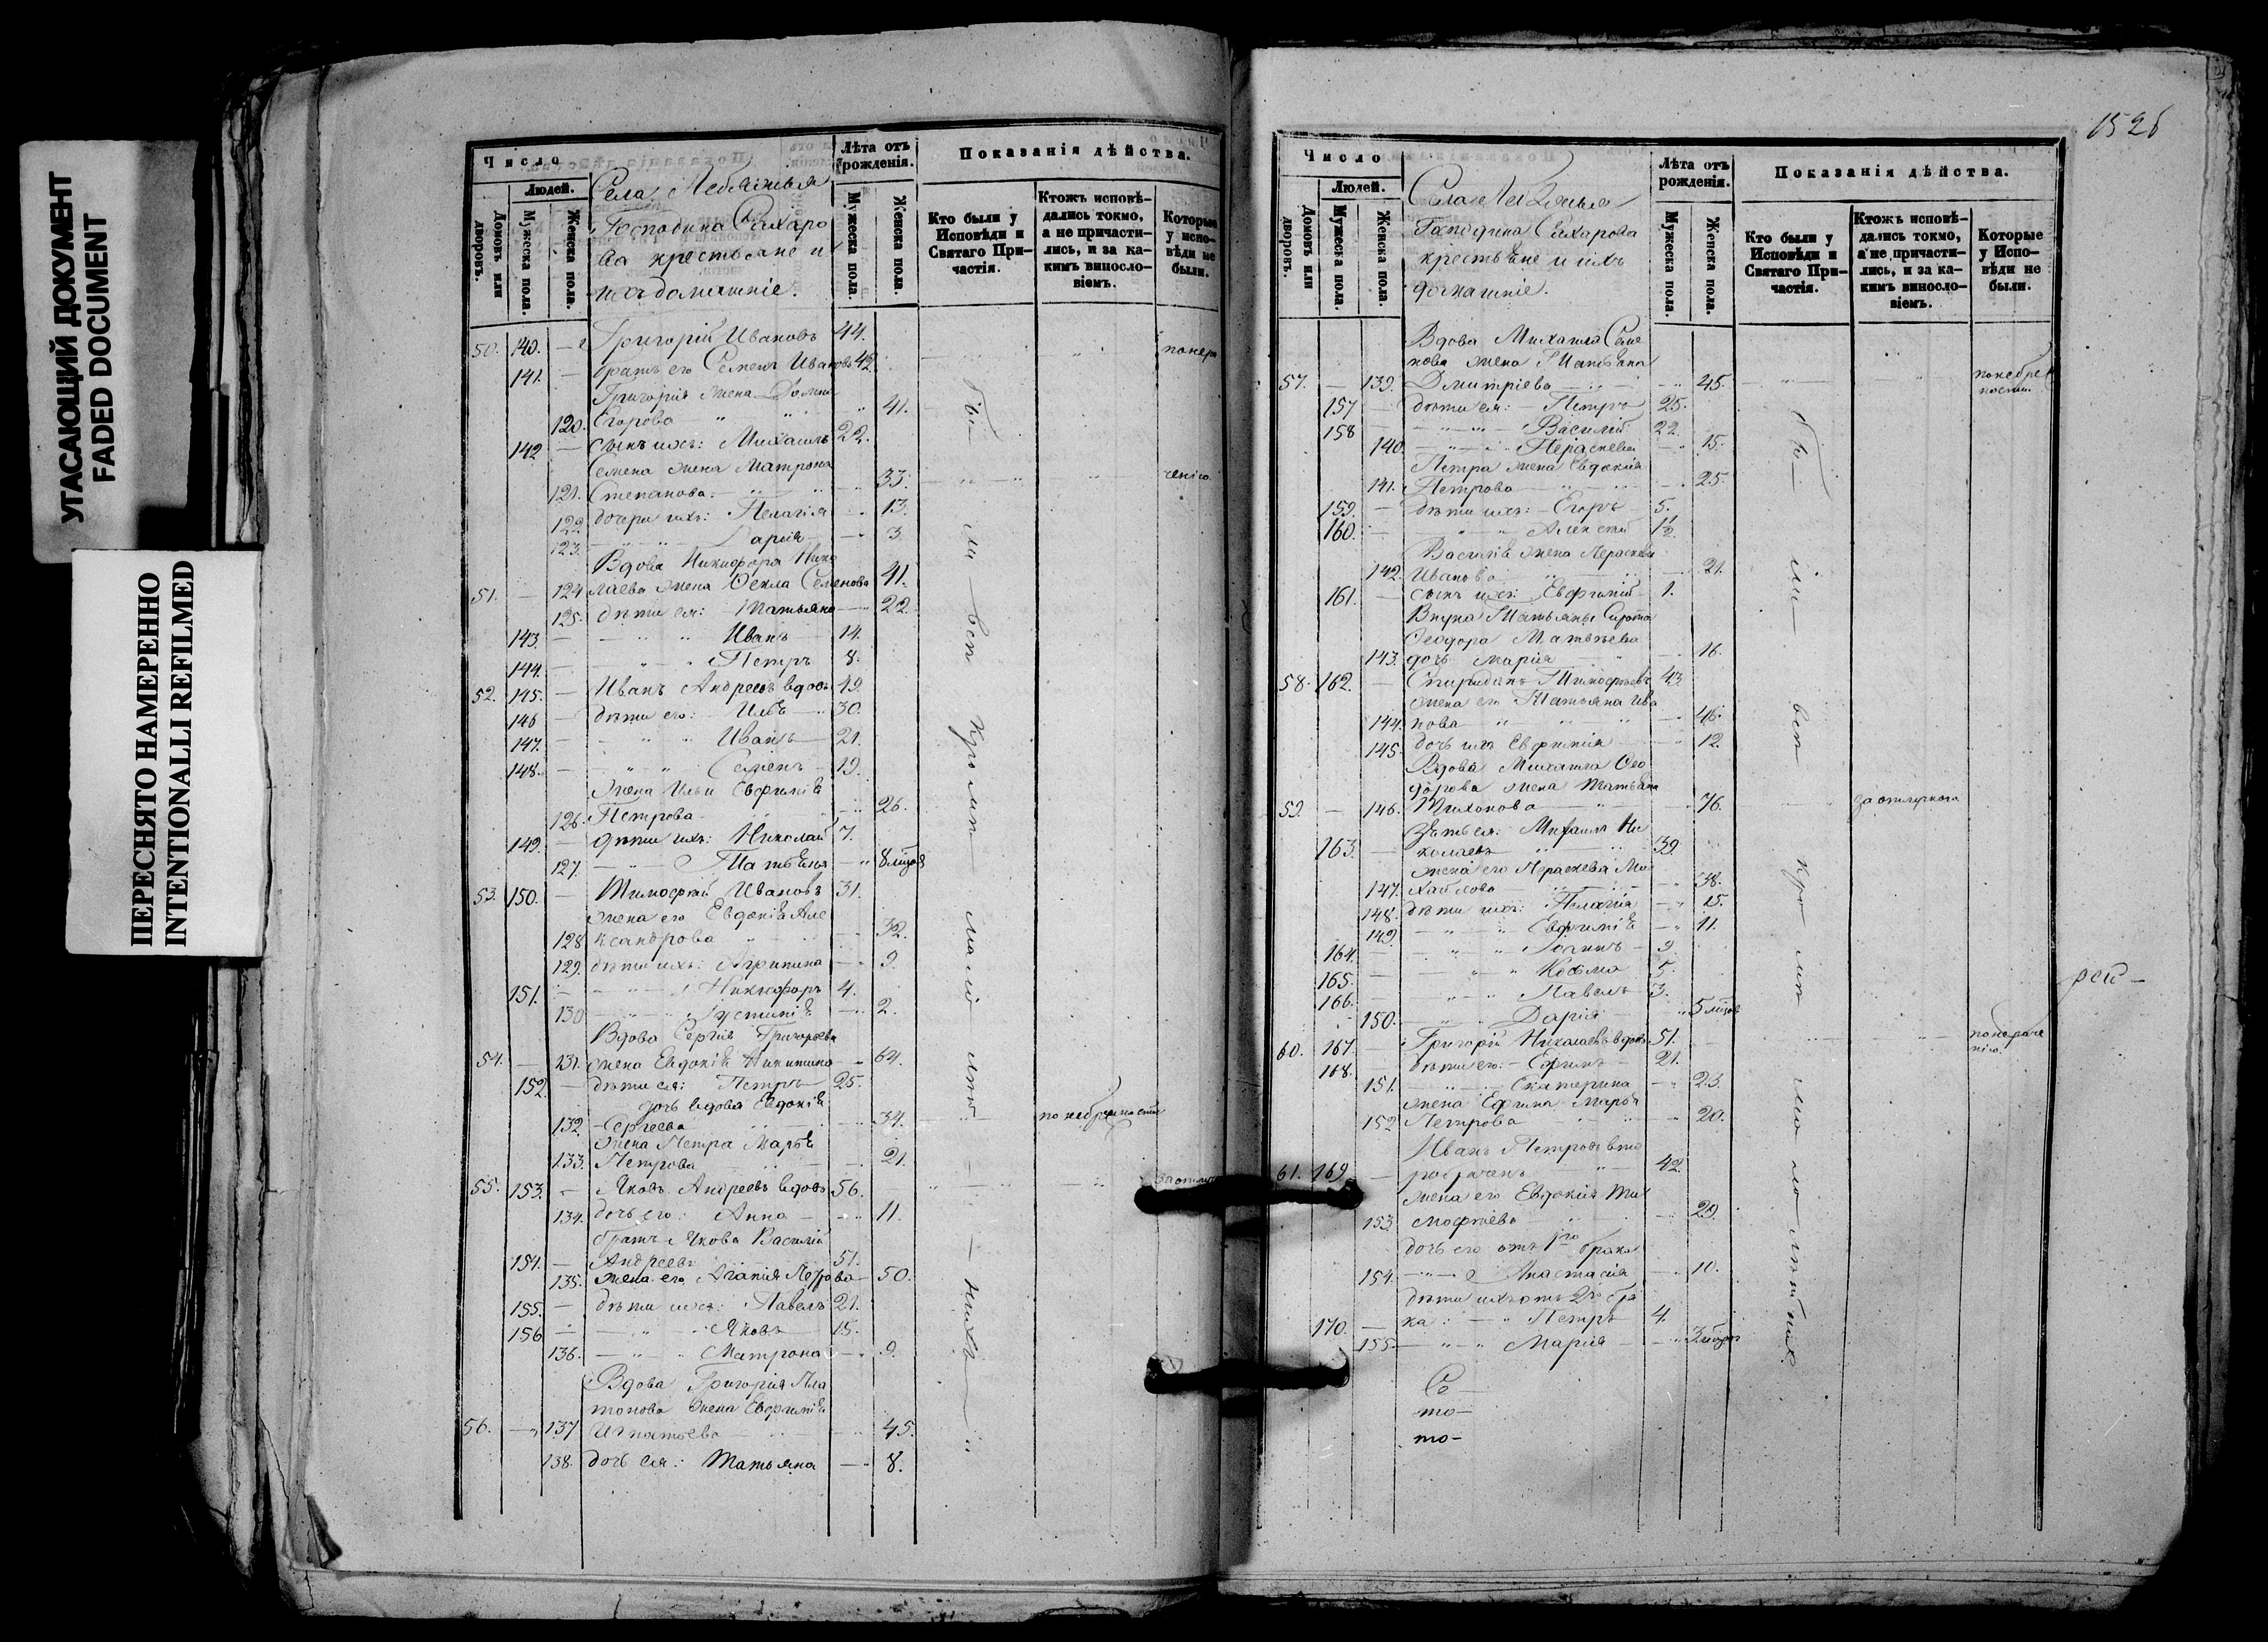 УГАСАЮЩИЙ ДОКУМЕНТ
FADED DOCUMENT
ПЕРЕСНЯТО НАМЕРЕННО
INTENTIONALLI REFILMED
Число
Людей.
Домовъ или дворовъ.
Мужеска пола.
Женска пола.
Села
Господина
крестьяне и
ихъ домашніе.
Лѣта отъ рожденія.
Мужеска пола.
Женска пола.
Показанія дѣйства.
Кто были у Исповѣди и Святаго Причастія.
Ктожъ исповѣдались токмо, а не причастились, и за какимъ винословіемъ.
Которые у исповѣди не были.
50. 140. Григорій Ивановъ 44.
141. братъ его Семенъ Ивановъ 42.
Григорія жена Домна
120. Егорова 41.
142 сынъ ихъ: Михаилъ 22.
Семена жена Матрона
121. Степанова 33.
122. дочери ихъ: Пелагія 13.
123. Дарія 3.
Вдова Никифора Нико
51. 124 лаева жена Фекла Семенова 41.
125. дѣти ея: Татьяна 22.
143. Иванъ 14.
144. Петръ 8.
52. 145. Иванъ Андреевъ вдовъ 49.
146 дѣти его: Илья 30.
147. Иванъ 21.
148. Семенъ 19.
Жена Ильи Евфимія
126. Петрова 26.
149. дѣти ихъ: Николай 7.
127. Татьяна 8
53. 150. Тимофей Ивановъ 31.
жена его Евдокія Але
128 ксандрова 32.
129. дѣти ихъ: Агрипина 9.
151. Никифоръ 4.
130 Іустинія 2.
Вдова Сергія Григорьева
54. 131. жена Евдокія Никитина 64.
152. дѣти ея: Петръ 25.
дочь вдова Евдокія
132. Сергеева 34. по небрежности
жена Петра Марья
133. Петрова 21.
55. 153. Яковъ Андреевъ вдовъ 56.
134. дочь его: Анна 11.
братъ Якова Василій
154. Андреевъ 51.
135. жена его Агапія Петрова 50.
155. дѣти ихъ: Павелъ 21.
156 Яковъ 15.
136. Матрона 9.
Вдова Григорія Пла
тонова жена Евфимія
56. 137 Игнатьева 45.
138. дочь ея: Татьяна 8.
1526
Число
Людей.
Домовъ или дворовъ.
Мужеска пола.
Женска пола.
Села
Господина
крестьяне и ихъ
домашніе.
Лѣта отъ рожденія.
Мужеска пола.
Женска пола.
Показанія дѣйства.
Кто были у Исповѣди и Святаго Причастія.
Ктожъ исповѣдались токмо, а не причастились, и за какимъ винословіемъ.
Которые у Исповѣди не были.
Вдова Михаила Семе
нова жена Татьяна
57. 139. Дмитріева 45.
157 дѣти ея: Петръ 25.
158 Василій 22.
140. Параскевія 15.
Петра жена Евдокія
141. Петрова 25.
159. дѣти ихъ: Егоръ 5.
160. Алексѣй 1½
Василія жена Параскевія
142. Иванова 21.
161. сынъ ихъ: Евфимій 1.
Внука Татьяны Сирота
Феодора Матвѣева
143. дочь Марія 16.
58. 162. Спиридонъ Тимофеевъ 43.
жена его Татьяна Ива
144. нова 46.
145. дочь ихъ Евфимія 12.
Вдова Михаила Фео
дорова жена Татьяна
59. 146. Тихонова 76.
Зять ея: Михаилъ Ни
163. колаевъ 39.
жена его Параскевія Ми
147. хайлова 38.
148. дѣти ихъ: Пелагія 15.
149. Евфимія 11.
164. 9.
165. Козьма 5.
166. Павелъ 3.
150. Дарія 5
60. 167 Григорій Николаевъ вдовъ 51.
168. дѣти его: Ефимъ 21.
151. Екатерина 23.
жена Ефима Марья
152 Петрова 20.
Иванъ Петровъ вто
61. 169 робрачень 42.
жена его Евдокія Ти
153. мофеева 29.
дочь его отъ 1го брака
154. Анастасія 10.
дѣти ихъ отъ 2го бра
170. ка: Петръ 4.
155. Марія 3
рей-
Се
то-
то-